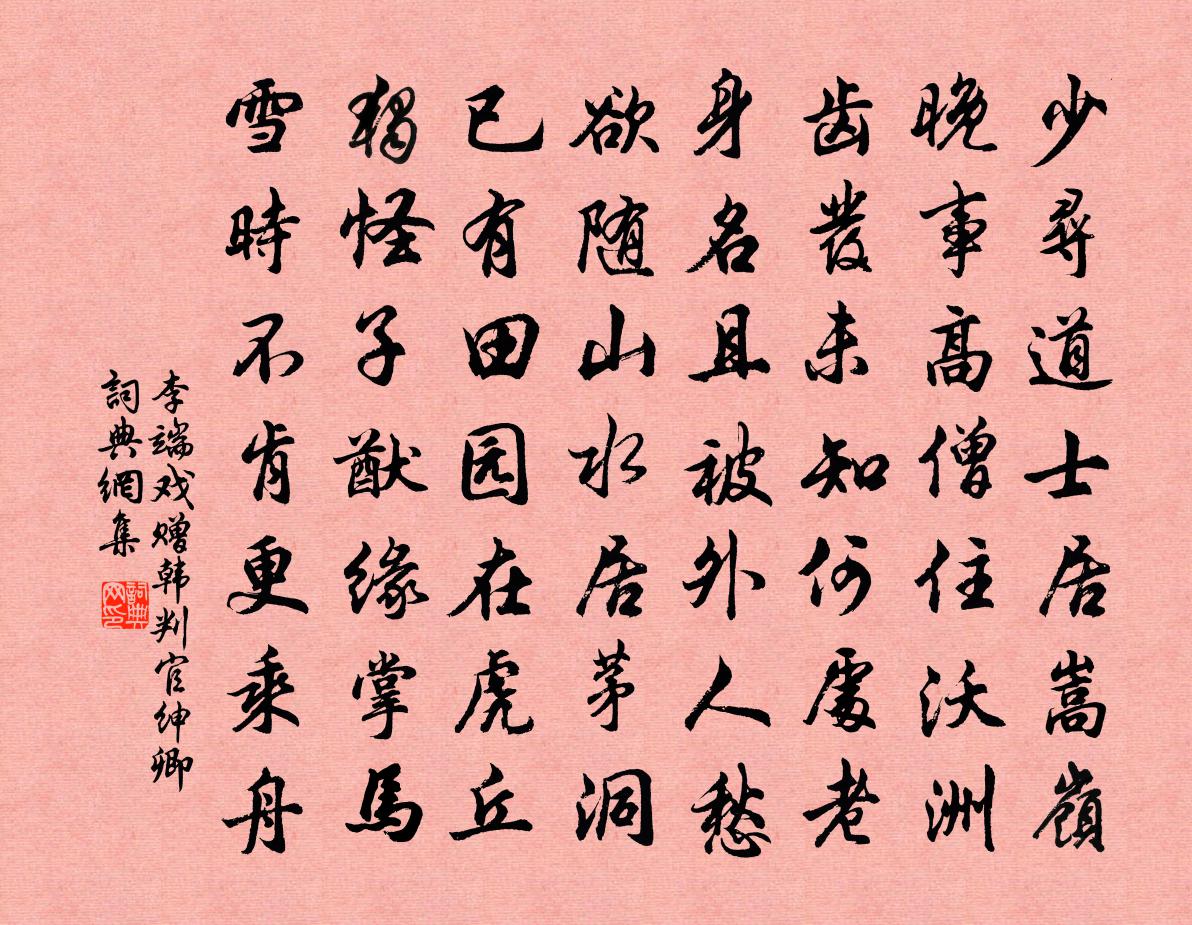 少尋道士居嵩嶺
晚事高僧住沃洲
齿發未知何處老
身名且被外人愁
欲随山水居茅洞
已有田园在虎丘
獨怪子猷缘掌馬
雪時不肯更乘舟
李端戏赠韩判官绅卿
詞典網集
詞典网印